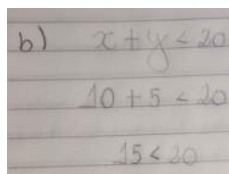 b) x + y < 20
10 + 5 < 20
15 < 20